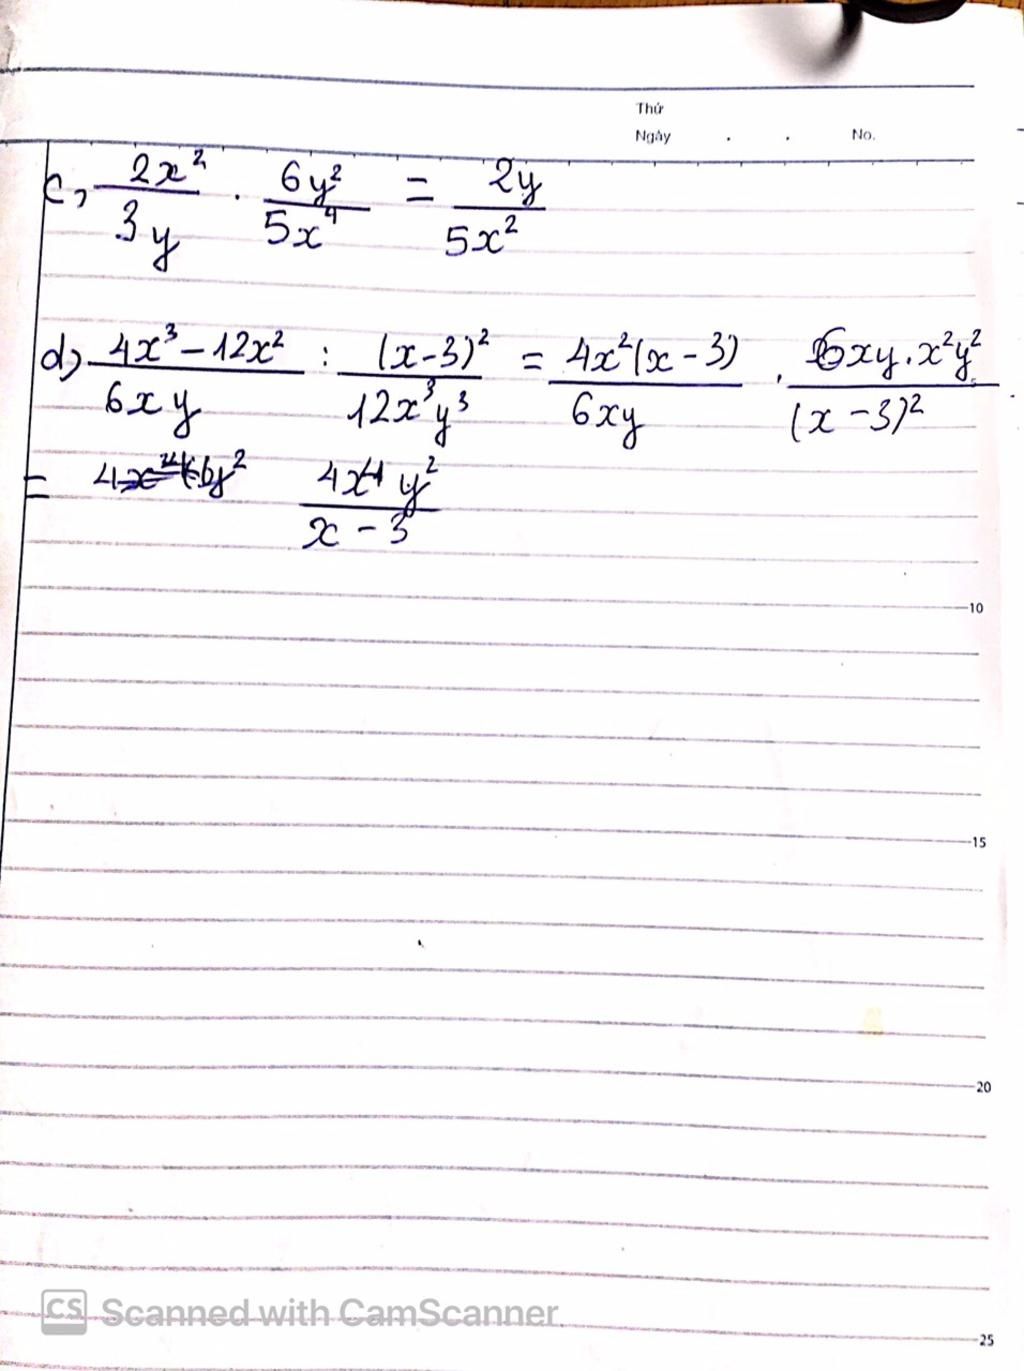 Thứ
Ngày . . No.
c, 2x²/3y . 6y²/5x⁴ = 2y/5x²
d, 4x³ - 12x²/6xy : (x-3)²/12x³y³ = 4x²(x-3)/6xy . 6xy.x²y²/(x-3)²
= 4x⁴y²/x-3
10
15
20
25
CS Scanned with CamScanner